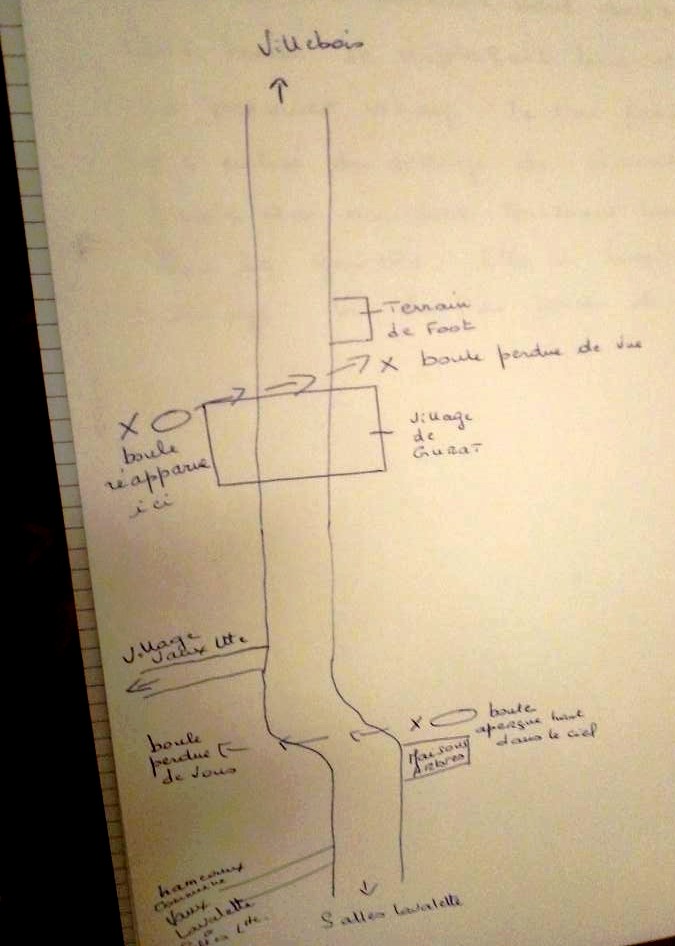 Villebois
Terrain
de Foot
X boule perdue de vue
X
boule
réapparue
ici
Village
de
GURAT
Village
Vaux Ltte
X
boule
aperçue haut
dans le ciel
boule
perdue
de vous
Maisons
Arbres
hameaux
commune
Vaux
Lavalette
Ltte.
Salles Lavalette